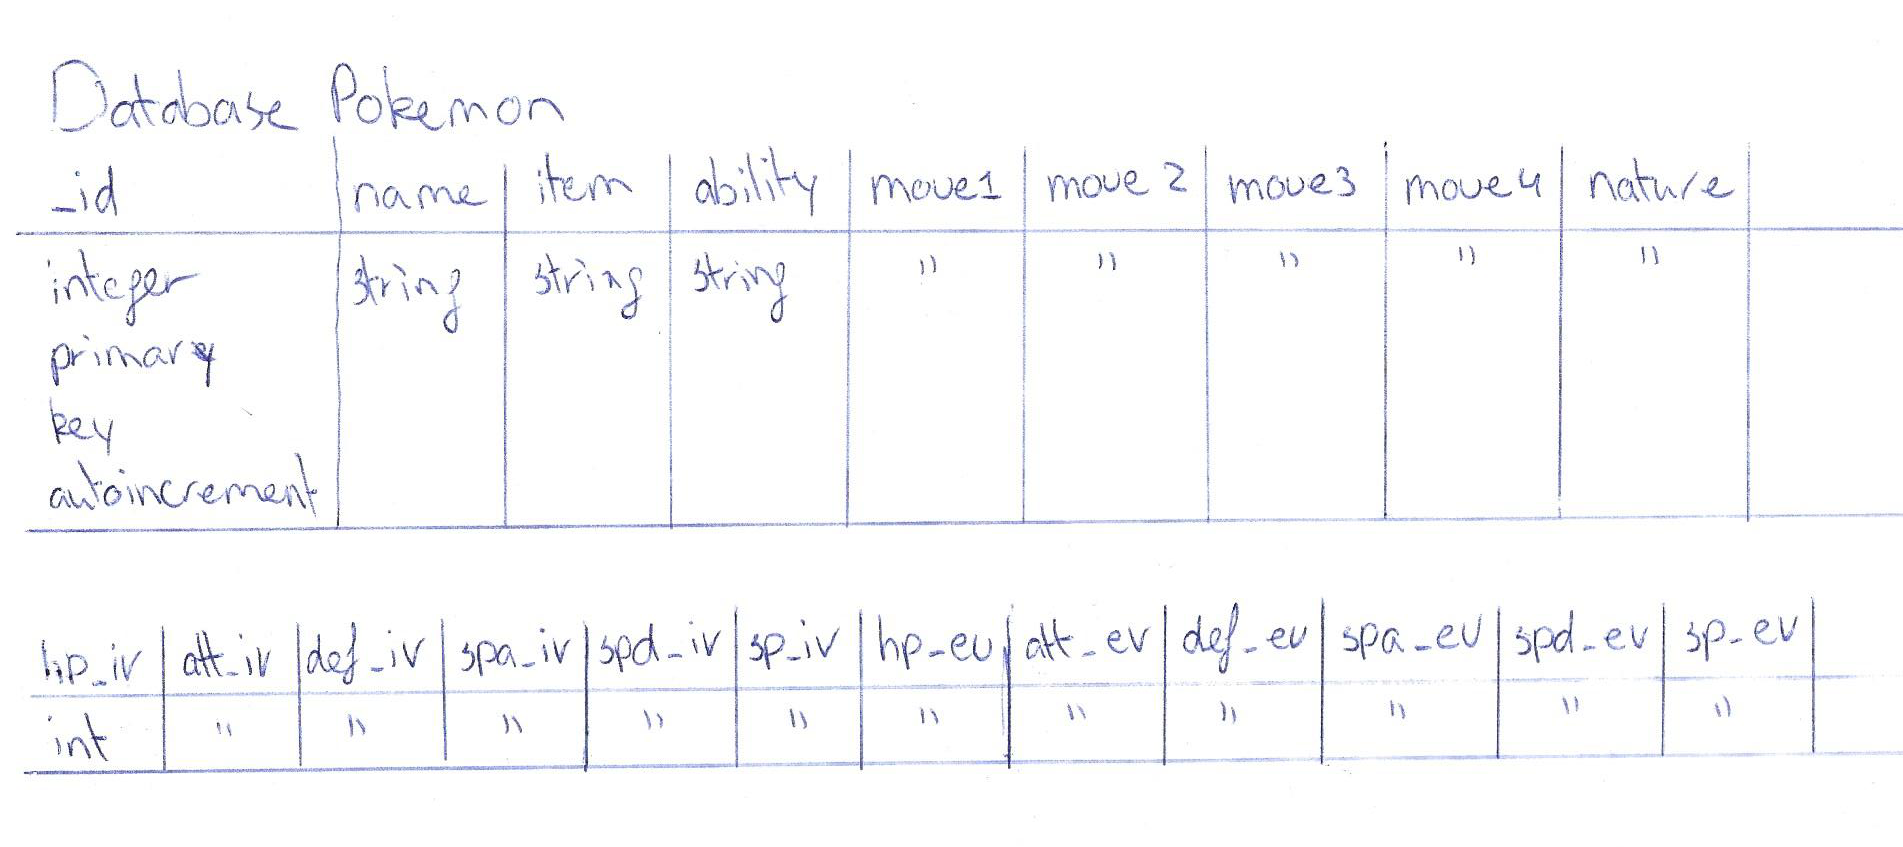 Database Pokemon
_id name item ability move1 move2 move3 move4 nature
integer string string string " " " " "
primary
key
autoincrement
hp_iv att_iv def_iv spa_iv spd_iv sp_iv hp_ev att_ev def_ev spa_ev spd_ev sp_ev
int " " " " " " " " " " "